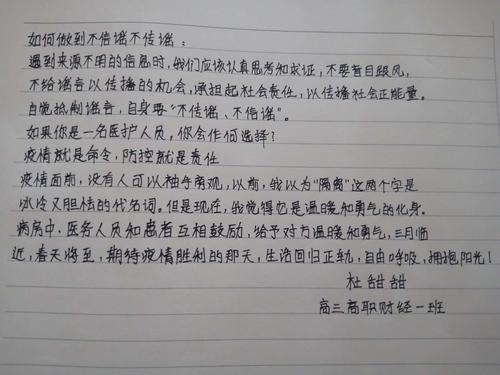 如何做到不信谣不传谣：
遇到来源不明的信息时，我们应该认真思考和求证，不要盲目跟风，
不给谣言以传播的机会，承担起社会责任，以传播社会正能量。
自觉抵制谣言，自身要“不传谣、不信谣”。
如果你是一名医护人员，你会作何选择？
疫情就是命令，防控就是责任
疫情面前，没有人可以袖手旁观，以前，我以为“隔离”这两个字是
冰冷又胆怯的代名词。但是现在，我觉得它是温暖和勇气的化身。
病房中、医务人员和患者互相鼓励，给予对方温暖和勇气，三月临
近，春天将至，期待疫情胜利的那天，生活回归正轨，自由呼吸，拥抱阳光！
杜甜甜
高三高职财经一班